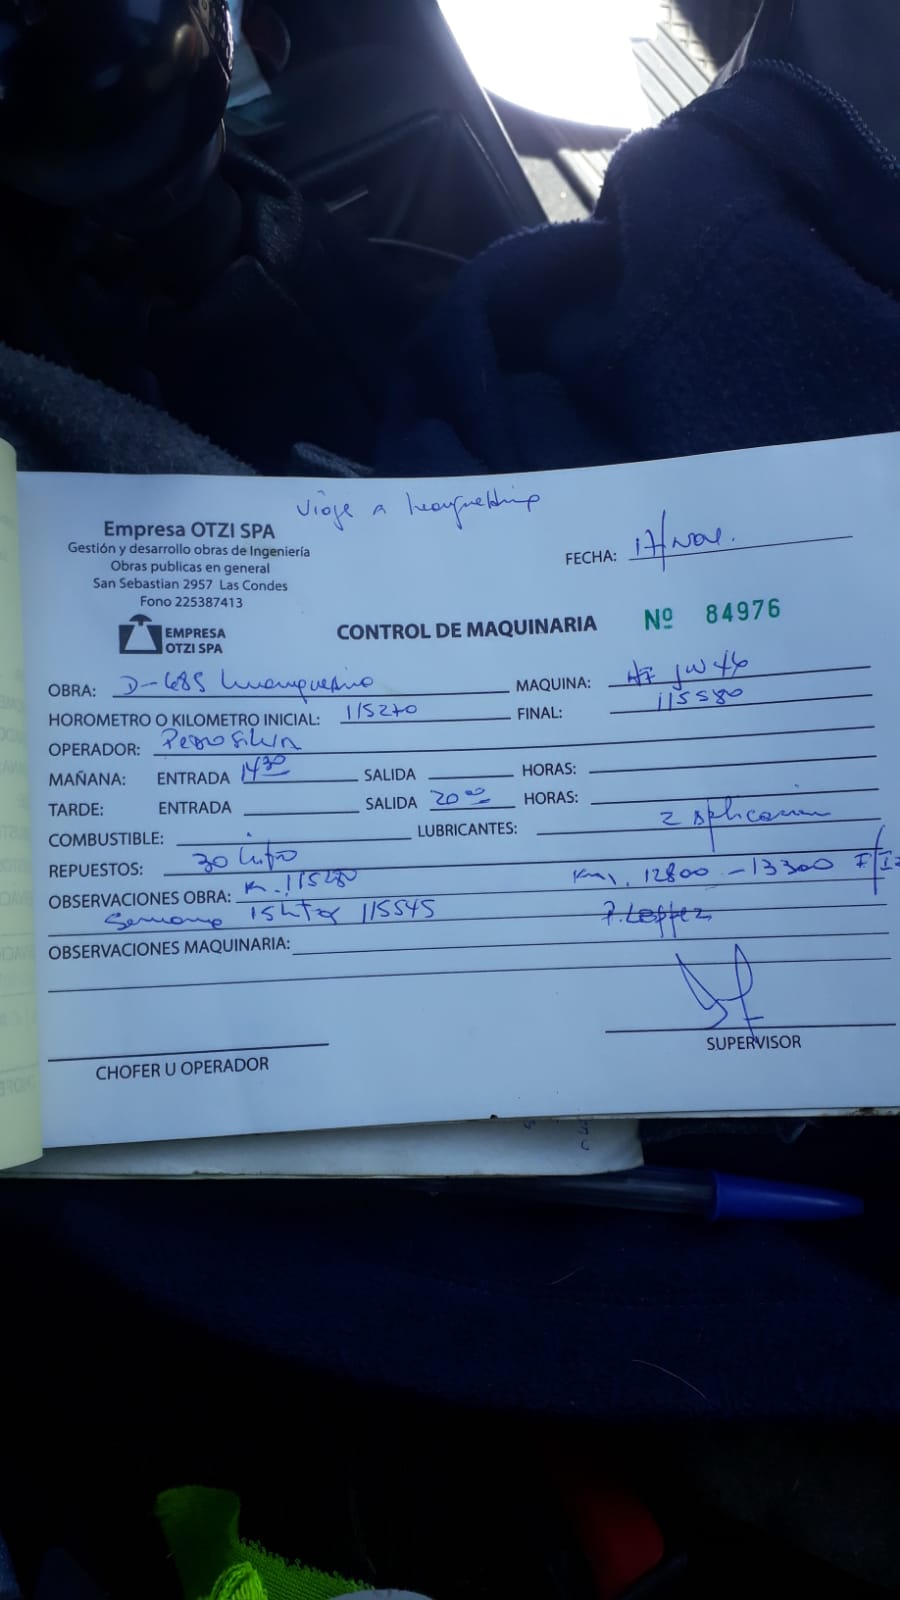 Viaje a
Empresa OTZI SPA
Gestión y desarrollo obras de Ingeniería
Obras publicas en general
San Sebastian 2957 Las Condes
Fono 225387413
EMPRESA
OTZI SPA
FECHA: 17/Nov.
CONTROL DE MAQUINARIA Nº 84976
OBRA: D-485 MAQUINA:
HOROMETRO O KILOMETRO INICIAL: 115270 FINAL: 115580
OPERADOR: Pedro Silva
MAÑANA: ENTRADA 14 30 SALIDA HORAS:
TARDE: ENTRADA SALIDA 20 00 HORAS:
COMBUSTIBLE: LUBRICANTES: 2 Aplicacion
REPUESTOS: 30
OBSERVACIONES OBRA: K. 115280 Km. 12800 - 13300
115545 P. Loppez
OBSERVACIONES MAQUINARIA:
CHOFER U OPERADOR
SUPERVISOR